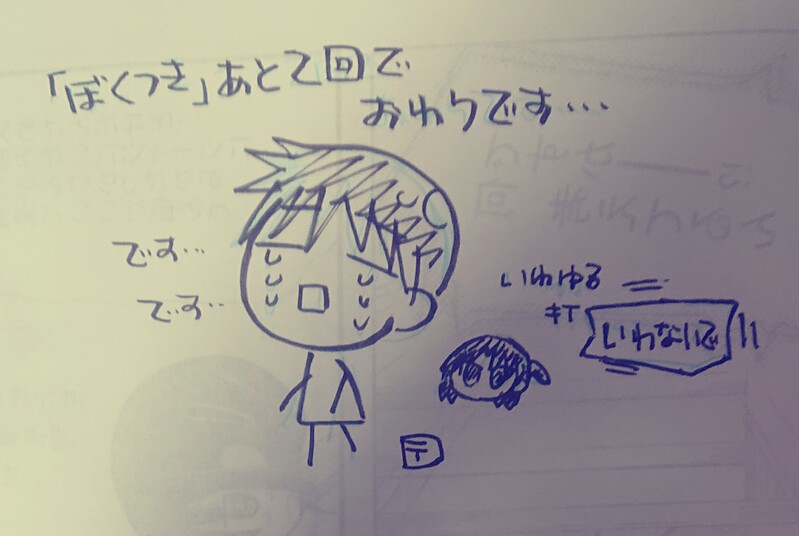 「ぼくつき」あと2回で
おわりです…
です…
です…
いわゆる
キT
いわないで!!